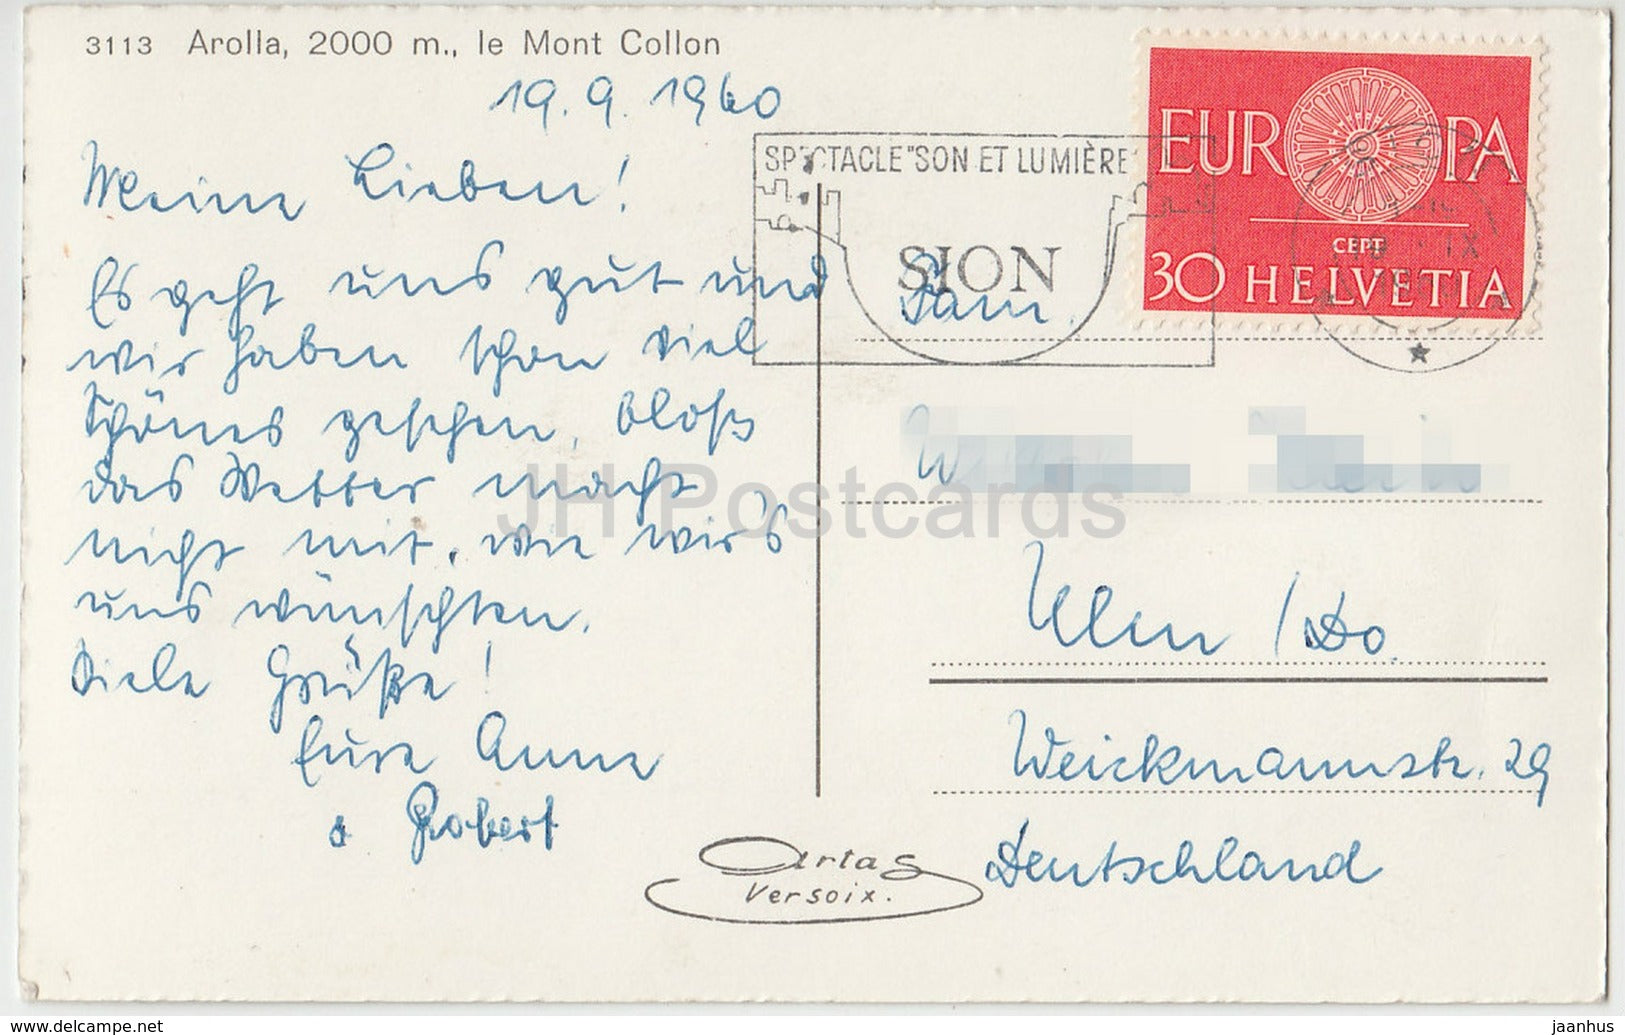 3113 Arolla, 2000 m., le Mont Collon
19.9.1960
Meine Lieben!
Es geht uns gut und
wir haben schon viel
Schönes gesehen, bloß
das Wetter macht
nicht mit, wie wir's
uns wünschten.
Viele Grüße!
Eure Anne
& Robert
SPECTACLE "SON ET LUMIÈRE"
SION
EUROPA
CEPT
30 HELVETIA
Fam.
Ulm /Do.
Weickmannstr. 29
Deutschland
Artas
Versoix.
JH Postcards
www.delcampe.net
jaanhus